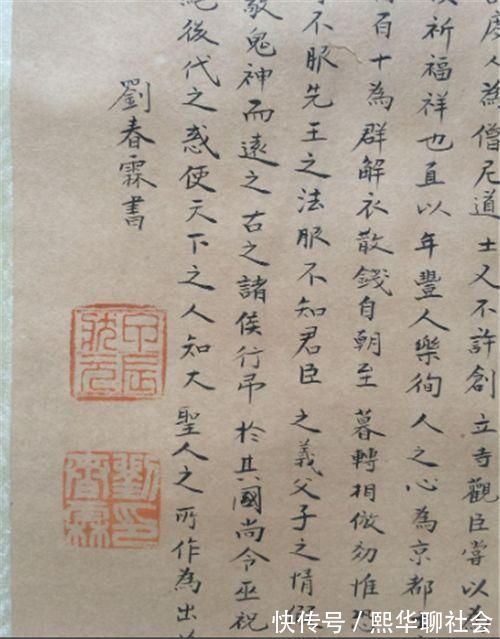 度人為僧尼道士又不許創立寺觀臣嘗以為
祈福祥也直以年豐人樂徇人之心為京都
百十為群解衣散錢自朝至暮轉相倣効惟恐
不服先王之法服不知君臣之義父子之情
敬鬼神而遠之古之諸侯行弔於其國尚令巫祝
後代之惑使天下之人知大聖人之所作為出
劉春霖書
甲辰狀元
劉印春霖
快传号/熙华聊社会